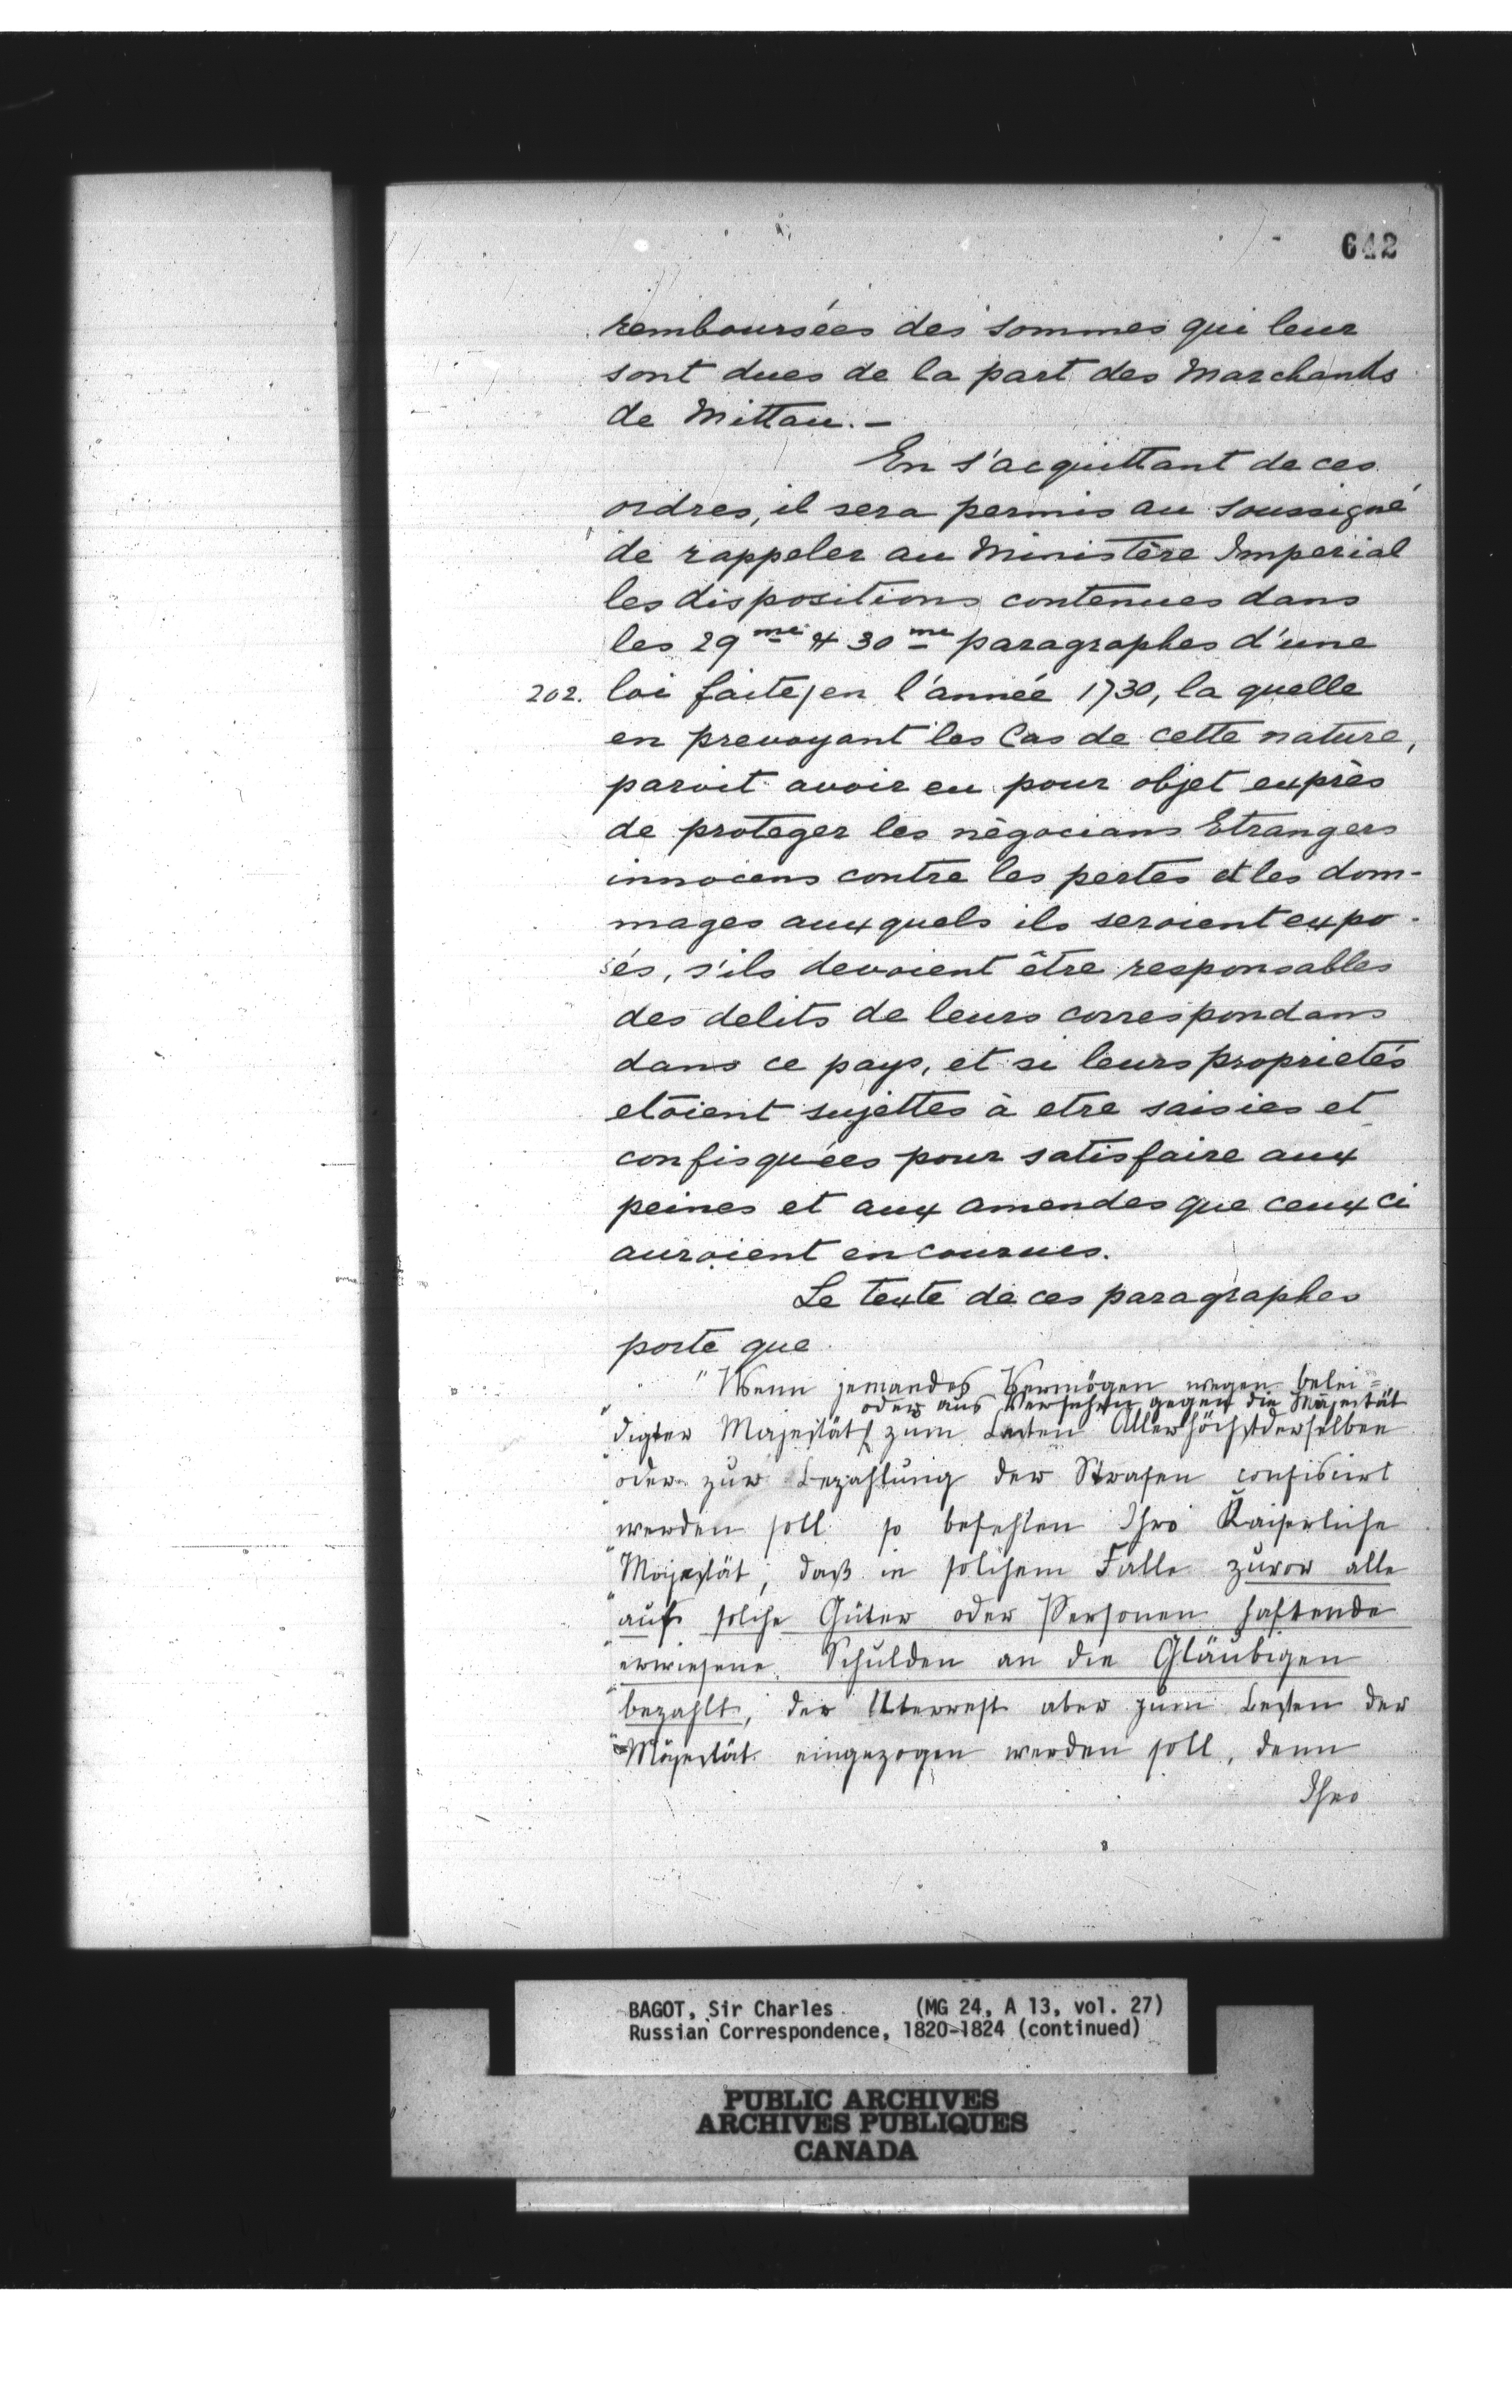 642
remboursées des sommes qui leur
sont dues de la part des Marchands
de Mittau. —
En s'acquittant de ces
ordres, il sera permis au soussigné
de rappeler au Ministère Imperial
les dispositions contenues dans
les 29me & 30me paragraphes d'une
202. loi faite, en l'année 1730, la quelle
en prevoyant les Cas de cette nature,
paroit avoir eu pour objet exprès
de proteger les négocians Etrangers
innocens contre les pertes et les dom-
mages auxquels ils seroient expo-
sés, s'ils devoient être responsables
des delits de leurs correspondans
dans ce pays, et si leurs proprietés
etoient sujettes à etre saisies et
confisquées pour satisfaire aux
peines et aux amendes que ceux ci
auroient encourues.
Le texte de ces paragraphes
porte que
"Wenn jemandes Vermögen wegen belei=
oder aus Versehen gegen die Majestät
"digter Majestät zum Besten Allerhöchstderselben
"oder zur Bezahlung der Strafen confiscirt
"werden soll so befehlen Ihro Kaiserliche
"Majestät, daß in solchem Falle zuvor alle
"auf solche Güter oder Personen haftende
"erwiesene Schulden an die Gläubigen
"bezahlt, der Uberrest aber zum Besten der
"Majestät eingezogen werden soll, denn
Ihro
BAGOT, Sir Charles (MG 24, A 13, vol. 27)
Russian Correspondence, 1820-1824 (continued)
PUBLIC ARCHIVES
ARCHIVES PUBLIQUES
CANADA